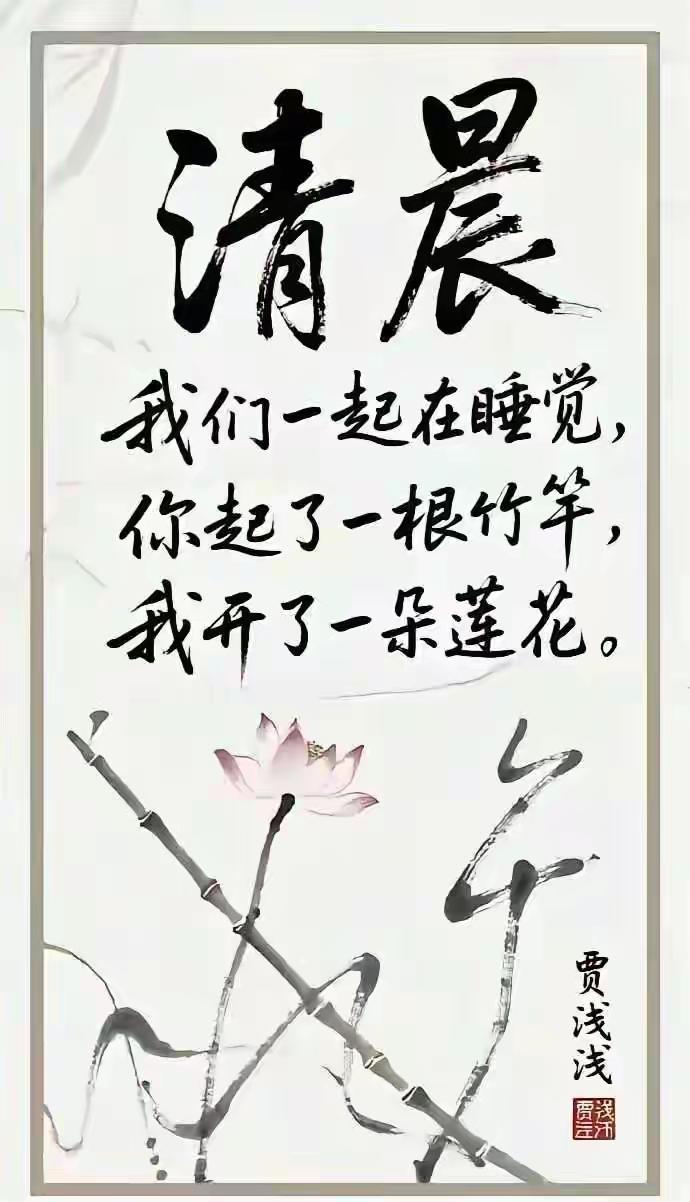 清晨
我们一起在睡觉，
你起了一根竹竿，
我开了一朵莲花。
贾浅浅